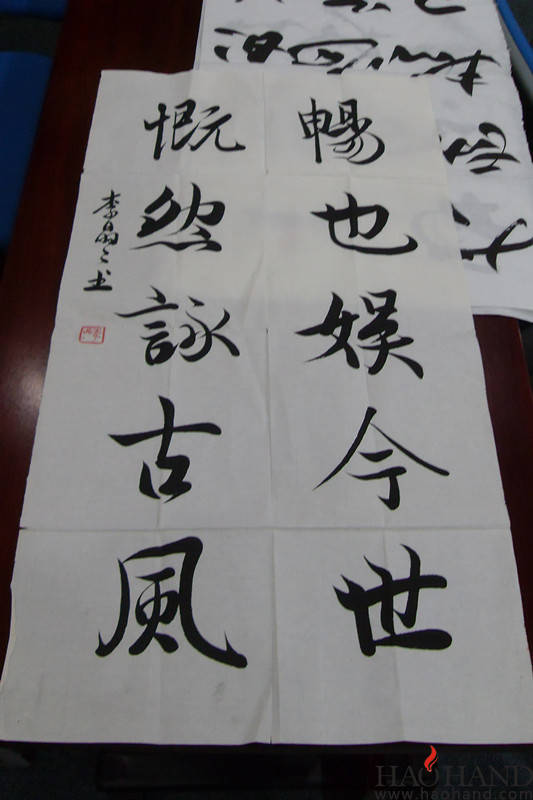 暢也娱今世
慨然詠古風
李晶晶书
HAOHAND
www.haohand.com